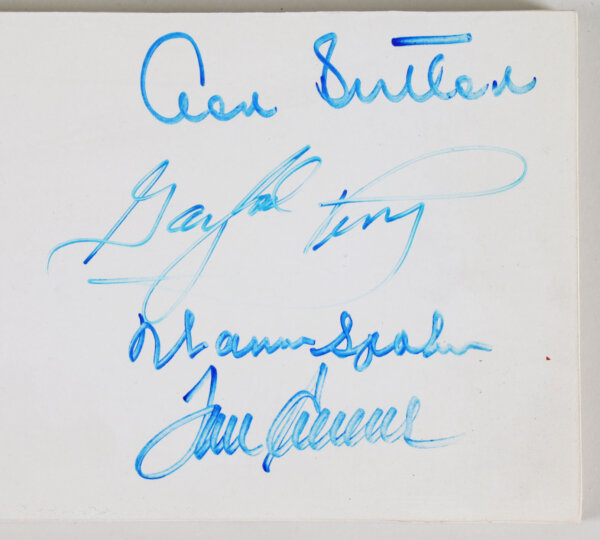 Don Sutton
Gaylord Perry
Warren Spahn
Tom Seaver